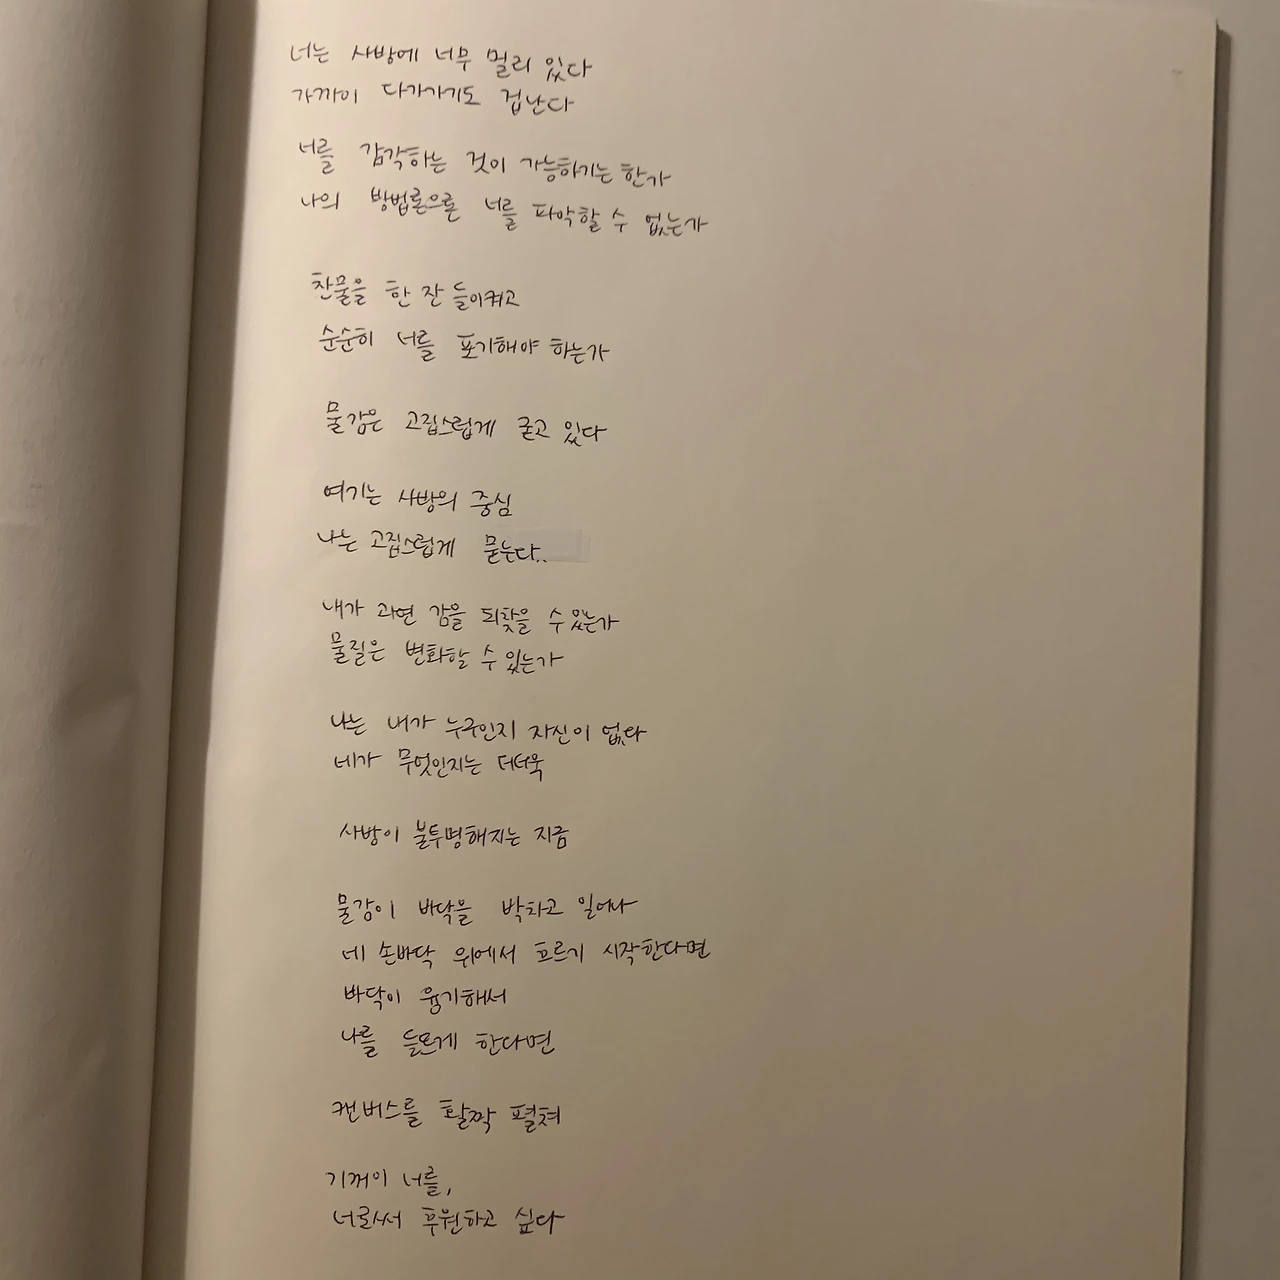 너는 사방에 너무 멀리 있다
가까이 다가가기도 겁난다
너를 감각하는 것이 가능하기는 한가
나의 방법론으론 너를 파악할 수 없는가
찬물을 한 잔 들이켜고
순순히 너를 포기해야 하는가
물감은 고집스럽게 굳고 있다
여기는 사방의 중심
나는 고집스럽게 묻는다..
내가 과연 감을 되찾을 수 있는가
물질은 변화할 수 있는가
나는 내가 누구인지 자신이 없다
네가 무엇인지는 더더욱
사방이 불투명해지는 지금
물감이 바닥을 박차고 일어나
네 손바닥 위에서 흐르기 시작한다면
바닥이 융기해서
나를 들뜨게 한다면
캔버스를 활짝 펼쳐
기꺼이 너를,
너로써 후원하고 싶다